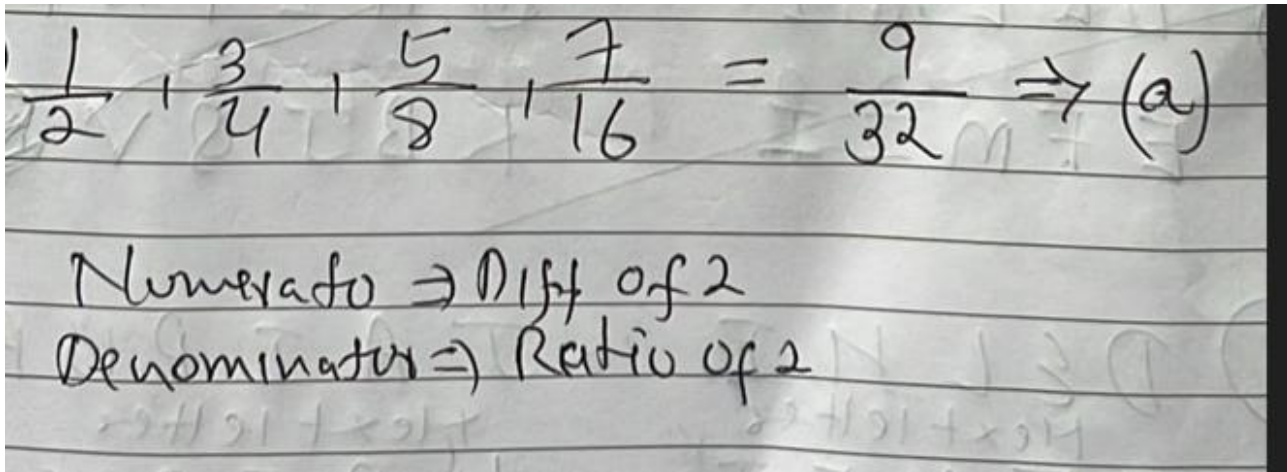 1/2, 3/4, 5/8, 7/16 = 9/32 ⇒ (a)
Numerato ⇒ Diff of 2
Denominator ⇒ Ratio of 2